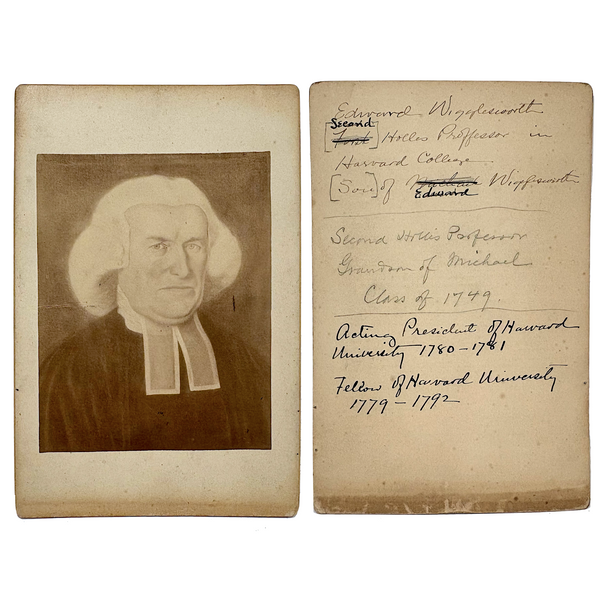 Edward Wigglesworth
Second
[First] Hollis Proffessor in
Harvard College.
[Son] of Michael Wigglesworth
Edward
Second Hollis Professor
Grandson of Michael
Class of 1749.
Acting President of Harvard
University 1780-1781
Fellow of Harvard University
1779-1792